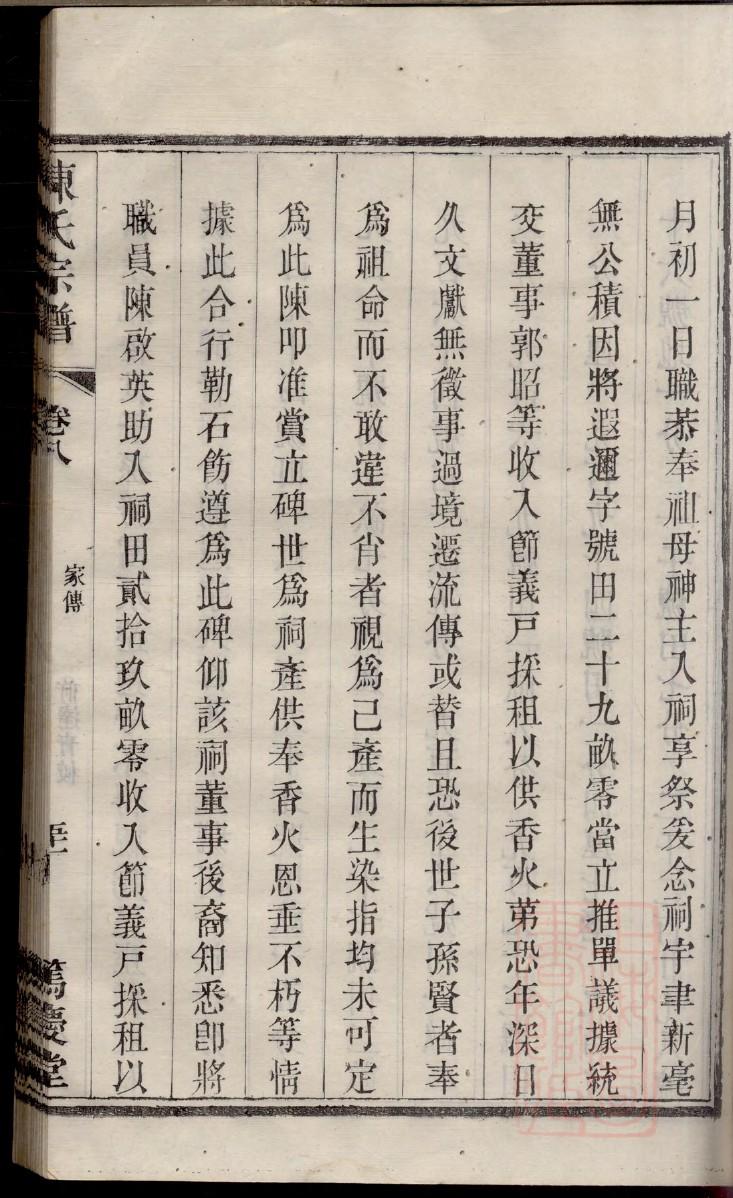 月初一日職恭奉祖母神主入祠享祭爰念祠宇聿新毫
無公積因將遐邇字號田二十九畝零當立推單議據統
交董事郭昭等收入節義戸採租以供香火苐恐年深日
久文獻無徵事過境遷流傳或替且恐後世子孫賢者奉
爲祖命而不敢違不肖者視爲己產而生染指均未可定
爲此陳叩准賞立碑世爲祠產供奉香火恩垂不朽等情
據此合行勒石飭遵爲此碑仰該祠董事後裔知悉卽將
職員陳啟英助入祠田貳拾玖畝零收入節義戸採租以
陳氏宗譜
卷八
家傳
篤慶堂